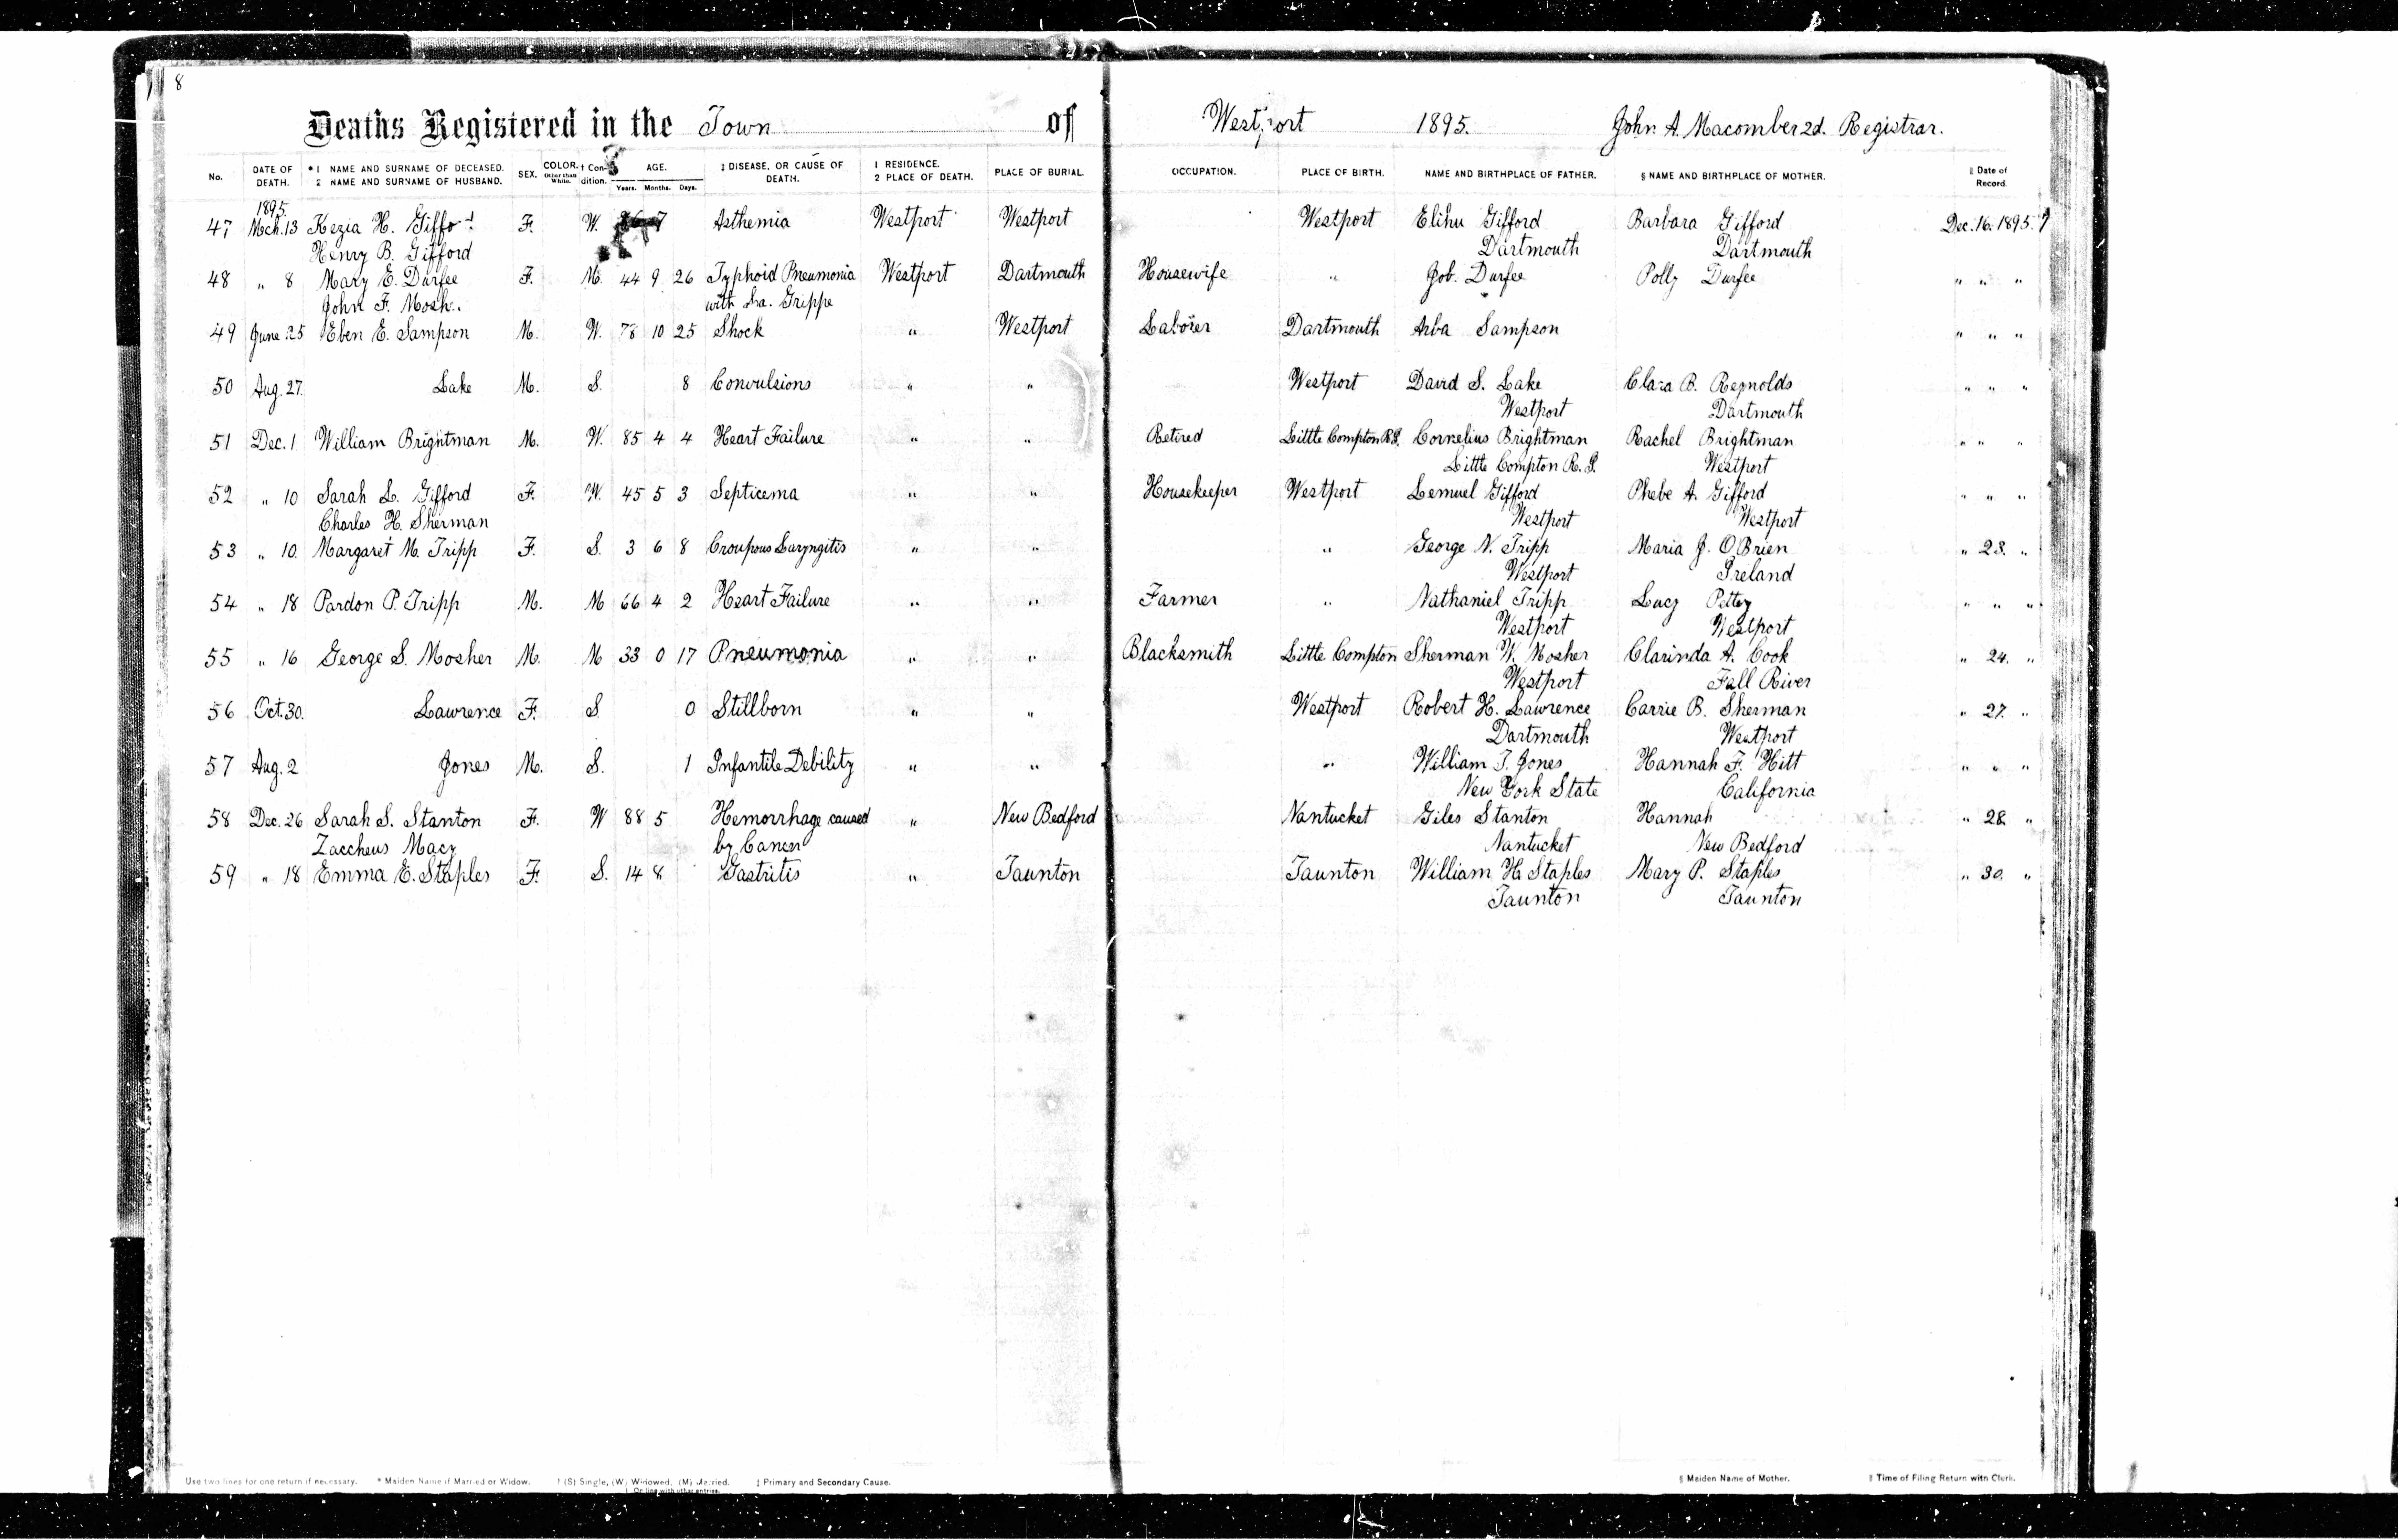 8
Deaths Registered in the Town of Westport 1895. John A. Macomber 2d. Registrar.
No. DATE OF DEATH. * 1 NAME AND SURNAME OF DECEASED. 2 NAME AND SURNAME OF HUSBAND. SEX. COLOR. Other than White. † Condition. AGE. Years. Months. Days. ‡ DISEASE, OR CAUSE OF DEATH. 1 RESIDENCE. 2 PLACE OF DEATH. PLACE OF BURIAL. OCCUPATION. PLACE OF BIRTH. NAME AND BIRTHPLACE OF FATHER. § NAME AND BIRTHPLACE OF MOTHER. ‖ Date of Record.
1895.
47 Mch. 13 Kezia H. Gifford F. W. 7 Asthemia Westport Westport Westport Elihu Gifford Barbara Gifford Dec. 16. 1895.
Henry B. Gifford Dartmouth Dartmouth
48 " 8 Mary E. Durfee F. M. 44 9 26 Typhoid Pneumonia Westport Dartmouth Housewife " Job. Durfee Polly Durfee " " "
John F. Mosh. with La. Grippe
49 June 25 Eben E. Sampson M. W. 78 10 25 Shock " Westport Laborer Dartmouth Arba Sampson " " "
50 Aug. 27. Lake M. S. 8 Convulsions " " Westport David S. Lake Clara B. Reynolds " " "
Westport Dartmouth
51 Dec. 1 William Brightman M. W. 85 4 4 Heart Failure " " Retired Little Compton R.I. Cornelius Brightman Rachel Brightman " " "
Little Compton R. I. Westport
52 " 10 Sarah L. Gifford F. W. 45 5 3 Septicema " " Housekeeper Westport Lemuel Gifford Phebe A. Gifford " " "
Charles H. Sherman Westport Westport
53 " 10. Margaret M. Tripp F. S. 3 6 8 Croupous Laryngitis " " " George N. Tripp Maria J. OBrien " 23. "
Westport Ireland
54 " 18 Pardon P. Tripp M. M 66 4 2 Heart Failure " " Farmer " Nathaniel Tripp Lucy Pettey " " "
Westport Westport
55 " 16 George S. Mosher M. M 33 0 17 Pneumonia " " Blacksmith Little Compton Sherman W. Mosher Clarinda A. Cook " 24. "
Westport Fall River
56 Oct. 30. Lawrence F. S. 0 Stillborn " " Westport Robert H. Lawrence Carrie B. Sherman " 27. "
Dartmouth Westport
57 Aug. 2 Jones M. S. 1 Infantile Debility " " " William T. Jones Hannah F. Hitt " " "
New York State California
58 Dec. 26 Sarah S. Stanton F. W 88 5 Hemorrhage caused " New Bedford Nantucket Giles Stanton Hannah " 28. "
Zaccheus Macy by Cancer Nantucket New Bedford
59 " 18 Emma E. Staples F. S. 14 8 Gastritis " Taunton Taunton William H. Staples Mary P. Staples " 30. "
Taunton Taunton
Use two lines for one return if necessary. * Maiden Name if Married or Widow. † (S) Single, (W) Widowed, (M) Married. ‡ Primary and Secondary Cause. § Maiden Name of Mother. ‖ Time of Filing Return with Clerk.